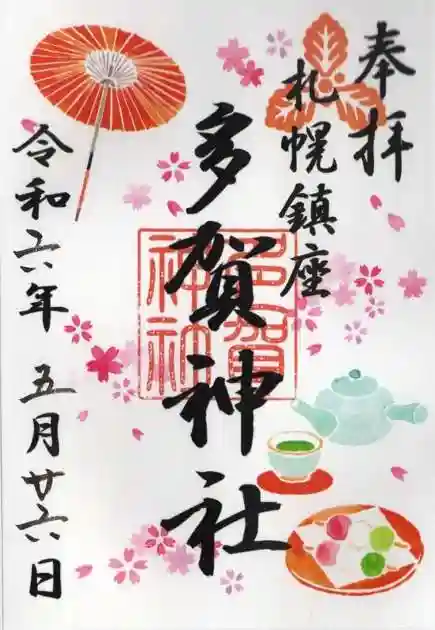 奉拝
札幌鎮座
多賀神社
多賀神社
令和六年 五月廿六日